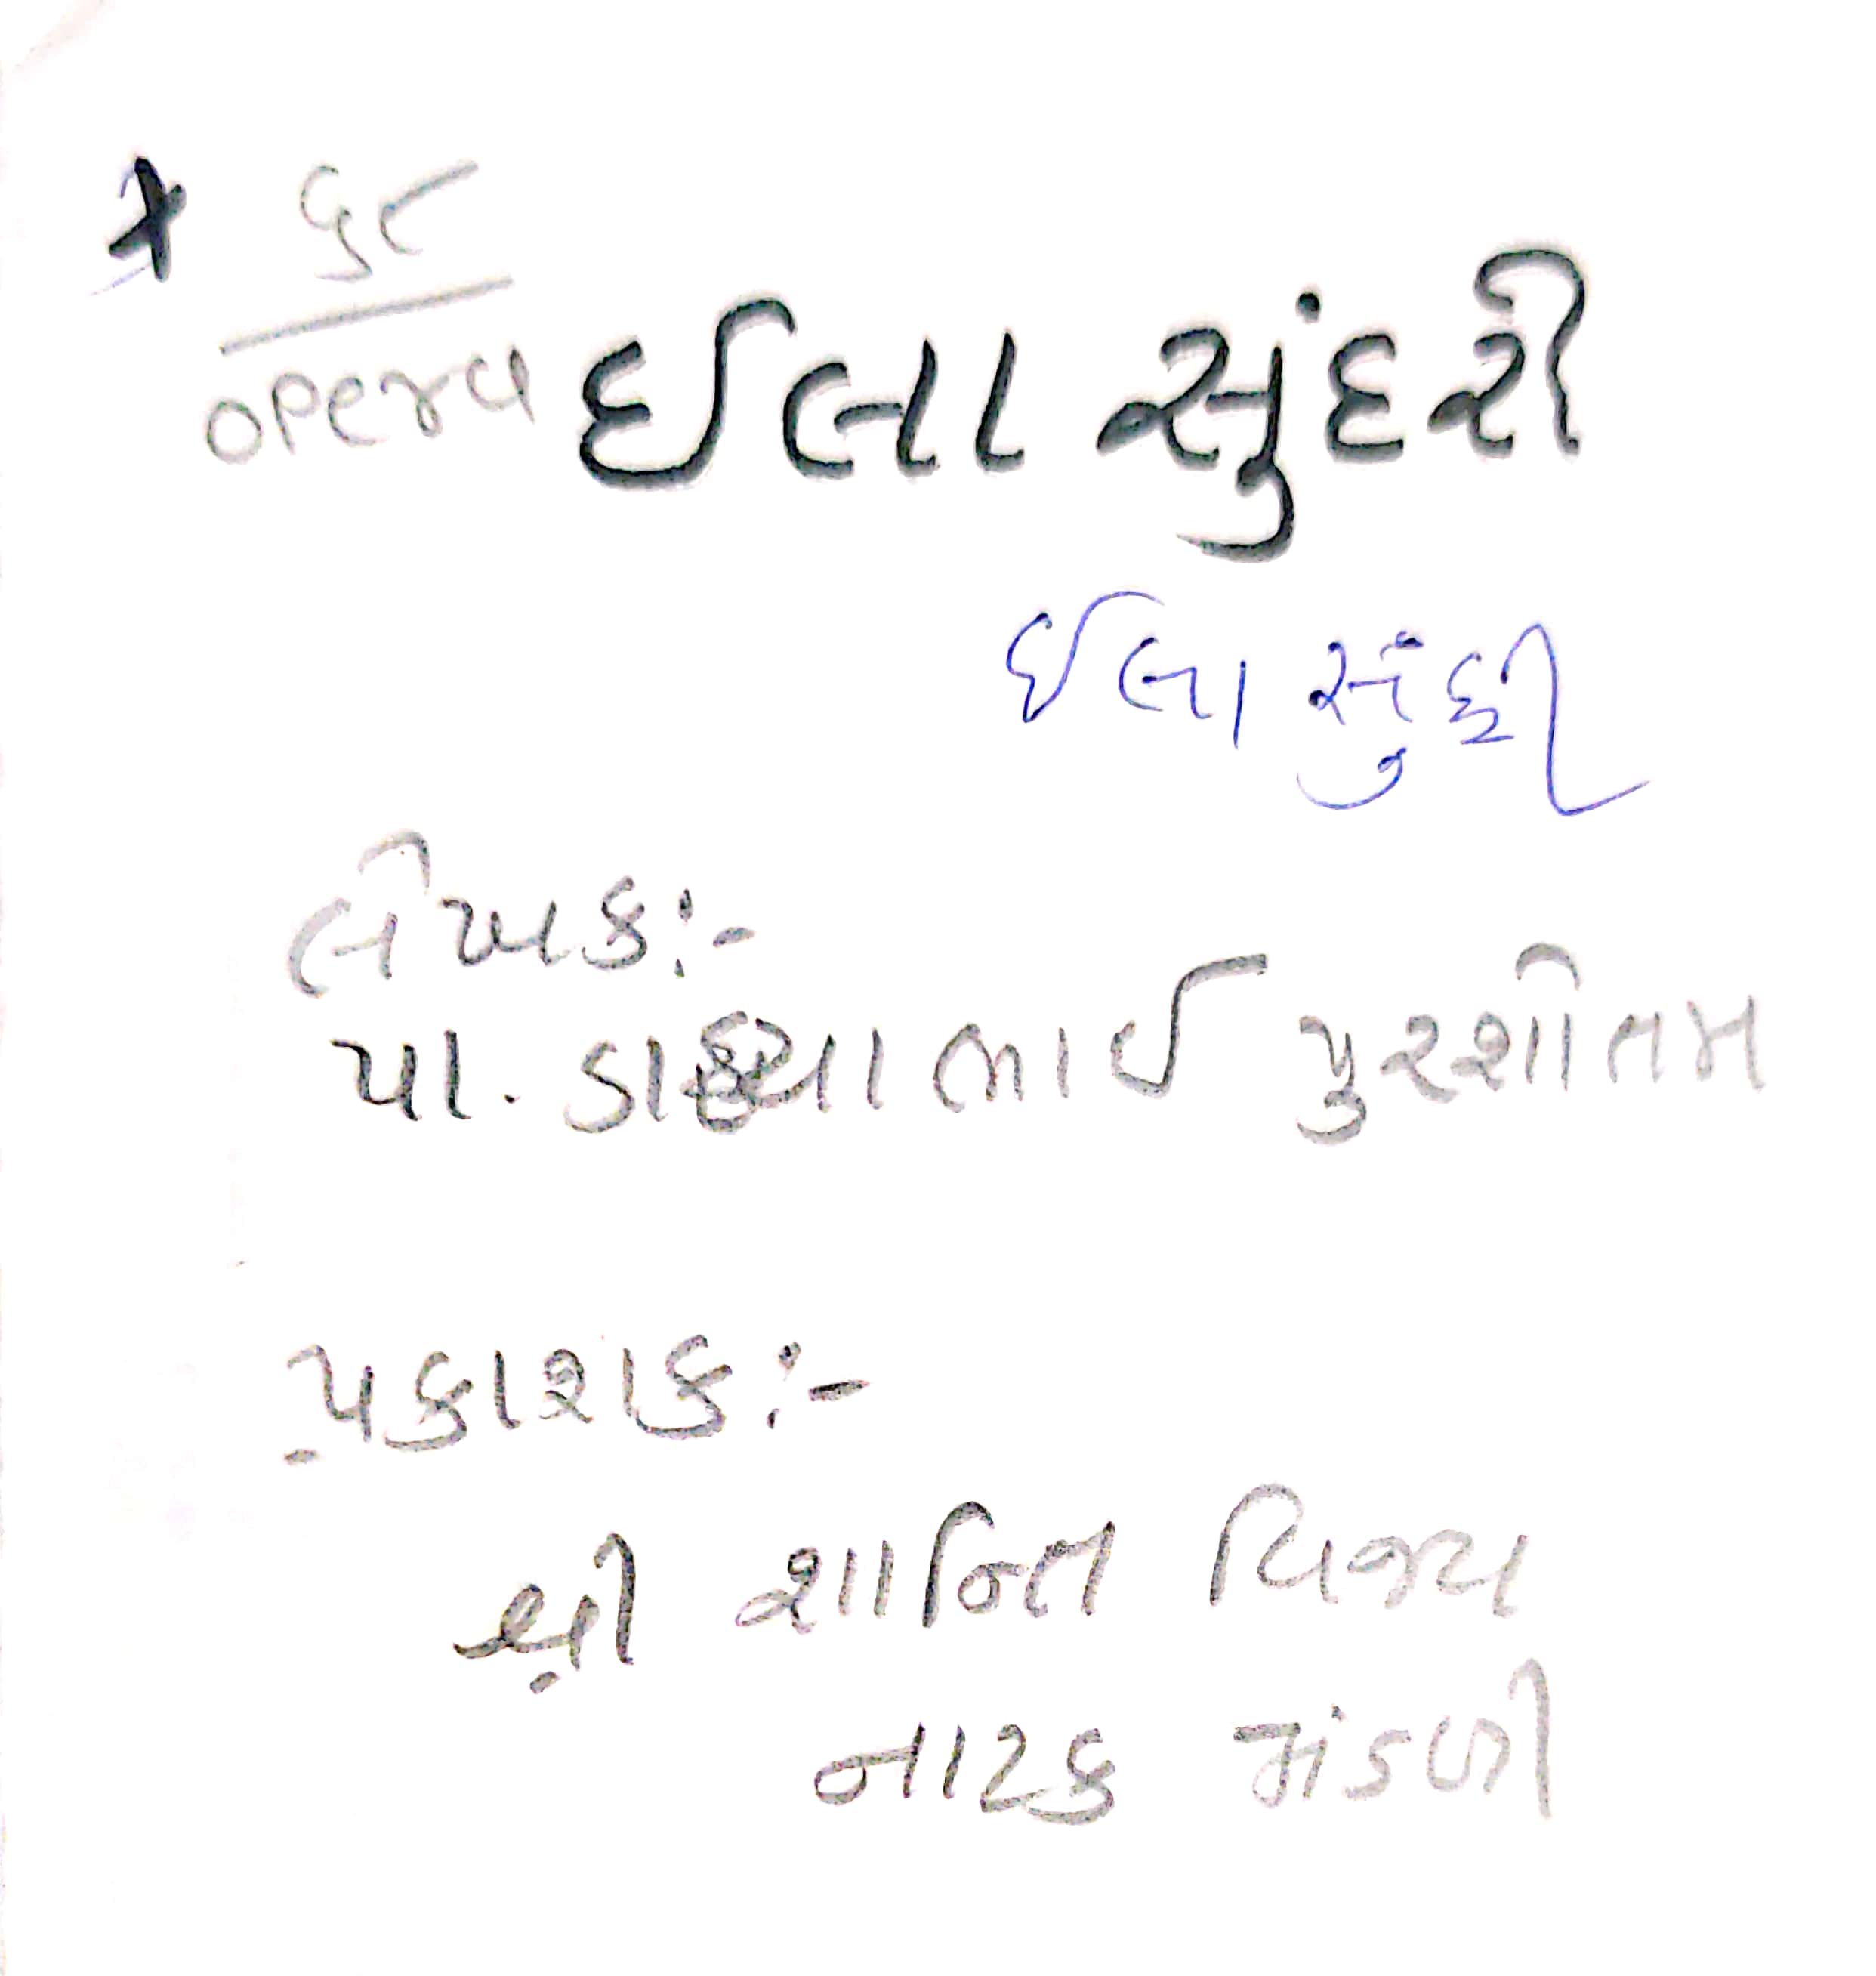 ૬૮
ઈલા સુંદરી
ઈલા સુંદરી
લેખક:-
પા. ડાહ્યાભાઈ પુરશોતમ
પ્રકાશક:-
શ્રી શાન્તિ વિજય
નાટક મંડળી